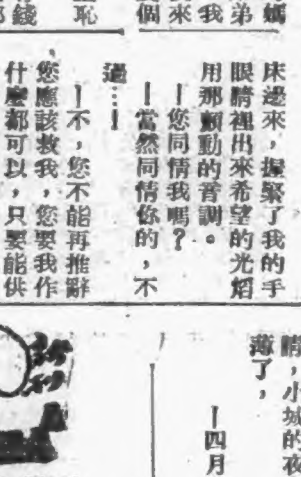 媽
弟
我
來
個
恥
錢
床邊來，握緊了我的手
眼睛裡出來希望的光焰
用那顫動的音調。
—您同情我嗎？
—當然同情你的，不
過…—
—不，您不能再推辭
您應該救我，您要我作
什麼都可以，只要能供
睛，小城的夜
薄了，
—四月